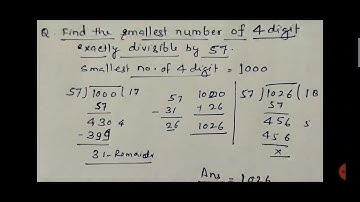 Q. Find the smallest number of 4 digit
exactly divisible by 57.
Smallest no. of 4 digit = 1000
57)1000(17
57
430 4
- 399
31 - Remainder
57
- 31
26
1000
+ 26
1026
57)1026(18
57
456 5
456
x
Ans = 1026